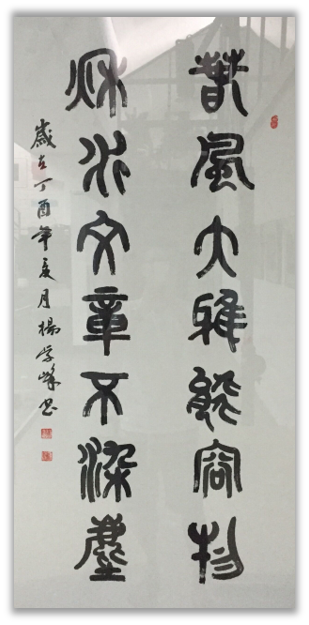 春風大雅能容物
秋水文章不染塵
歲在丁酉年夏月楊學峰書